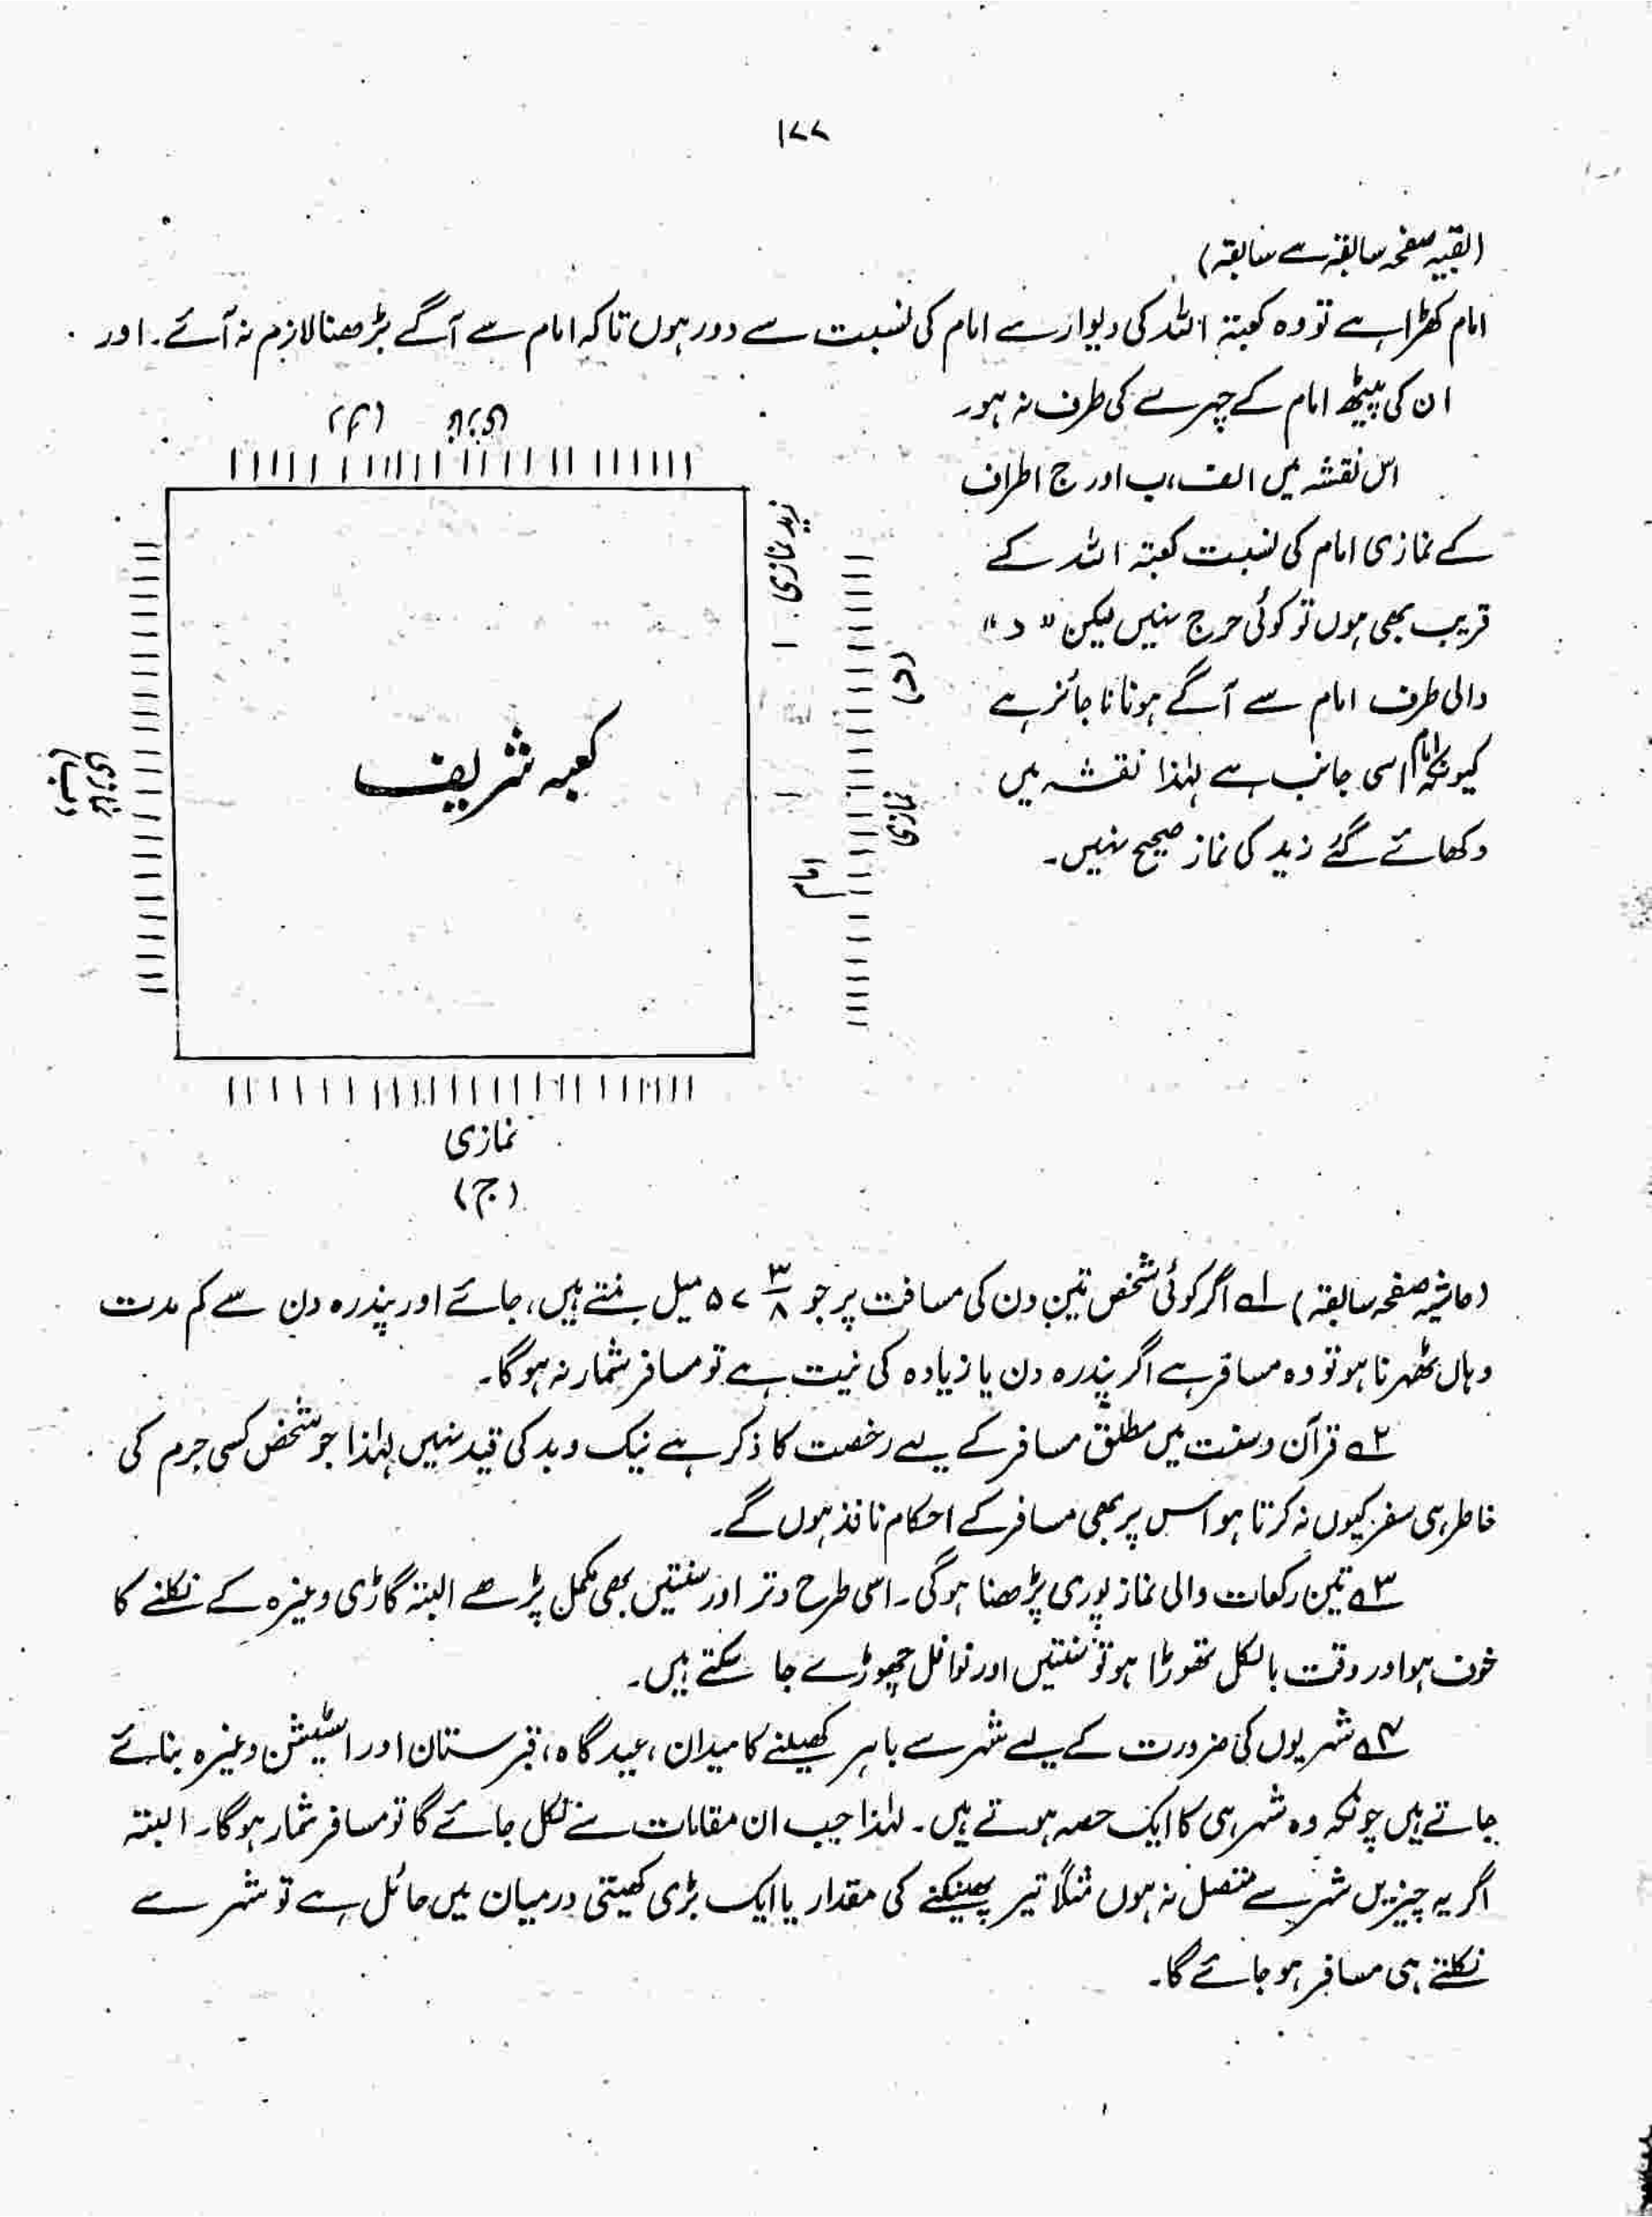 ۱۷۷
(بقیہ صفحہ سابقہ سے سابقہ)
امام کھڑا ہے تو وہ کعبۃ اللہ کی دیوار سے امام کی نسبت سے دور ہوں تاکہ امام سے آگے بڑھنا لازم نہ آئے۔ اور
ان کی پیٹھ امام کے چہرے کی طرف نہ ہو۔
اس نقشہ میں الف، ب اور ج اطراف
کے نمازی امام کی نسبت کعبۃ اللہ کے
قریب بھی ہوں تو کوئی حرج نہیں لیکن "د"
والی طرف امام سے آگے ہونا ناجائز ہے
کیونکہ امام اسی جانب ہے لہٰذا نقشہ میں
دکھائے گئے زید کی نماز صحیح نہیں۔
نمازی
زید نمازی
(د)
نمازی
امام
کعبہ شریف
نمازی
(ب)
نمازی
(ج)
(حاشیہ صفحہ سابقہ) ۱؎ اگر کوئی شخص تین دن کی مسافت پر جو ۵۷ ۳/۸ میل بنتے ہیں، جائے اور پندرہ دن سے کم مدت
وہاں ٹھہرنا ہو تو وہ مسافر ہے اگر پندرہ دن یا زیادہ کی نیت ہے تو مسافر شمار نہ ہوگا۔
۲؎ قرآن و سنت میں مطلق مسافر کے لیے رخصت کا ذکر ہے نیک و بد کی قید نہیں لہٰذا جو شخص کسی جرم کی
خاطر ہی سفر کیوں نہ کرتا ہو اس پر بھی مسافر کے احکام نافذ ہوں گے۔
۳؎ تین رکعات والی نماز پوری پڑھنا ہوگی۔ اسی طرح وتر اور سنتیں بھی مکمل پڑھے البتہ گاڑی وغیرہ کے نکلنے کا
خوف ہو اور وقت بالکل تھوڑا ہو تو سنتیں اور نوافل چھوڑے جا سکتے ہیں۔
۴؎ شہریوں کی ضرورت کے لیے شہر سے باہر کھیلنے کا میدان، عیدگاہ، قبرستان اور اسٹیشن وغیرہ بنائے
جاتے ہیں چونکہ وہ شہر ہی کا ایک حصہ ہوتے ہیں۔ لہٰذا جب ان مقامات سے نکل جائے گا تو مسافر شمار ہوگا۔ البتہ
اگر یہ چیزیں شہر سے متصل نہ ہوں مثلاً تیر پھینکنے کی مقدار یا ایک بڑی کھیتی درمیان میں حائل ہے تو شہر سے
نکلتے ہی مسافر ہو جائے گا۔